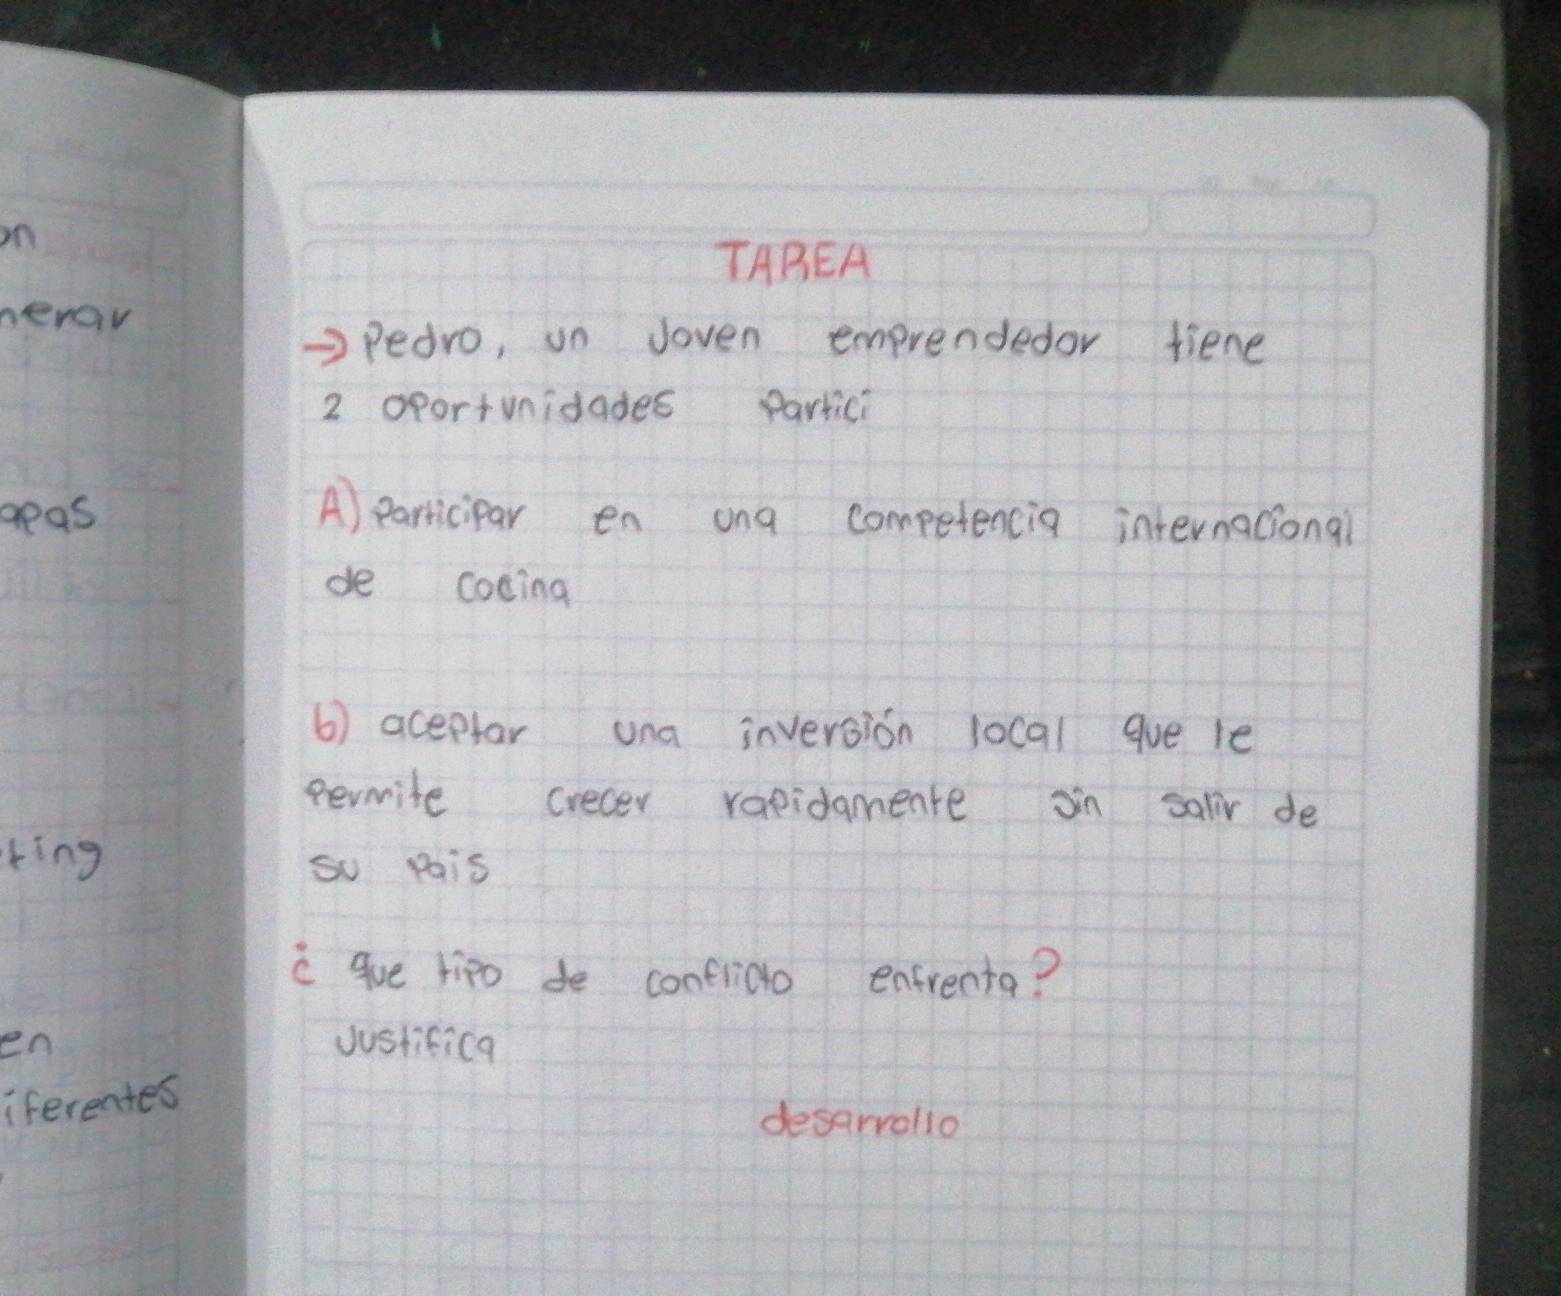 on
nerar
apas
ting
en
iferentes
TAREA
→ Pedro, un Joven emprendedor tiene
2 oportunidades Partici
A) Participar en una competencia internacional
de cocina
b) aceptar una inversión local que le
Permite crecer rapidamente sin salir de
su Pais
¿ que tipo de conflicto enfrenta?
Justifica
desarrollo